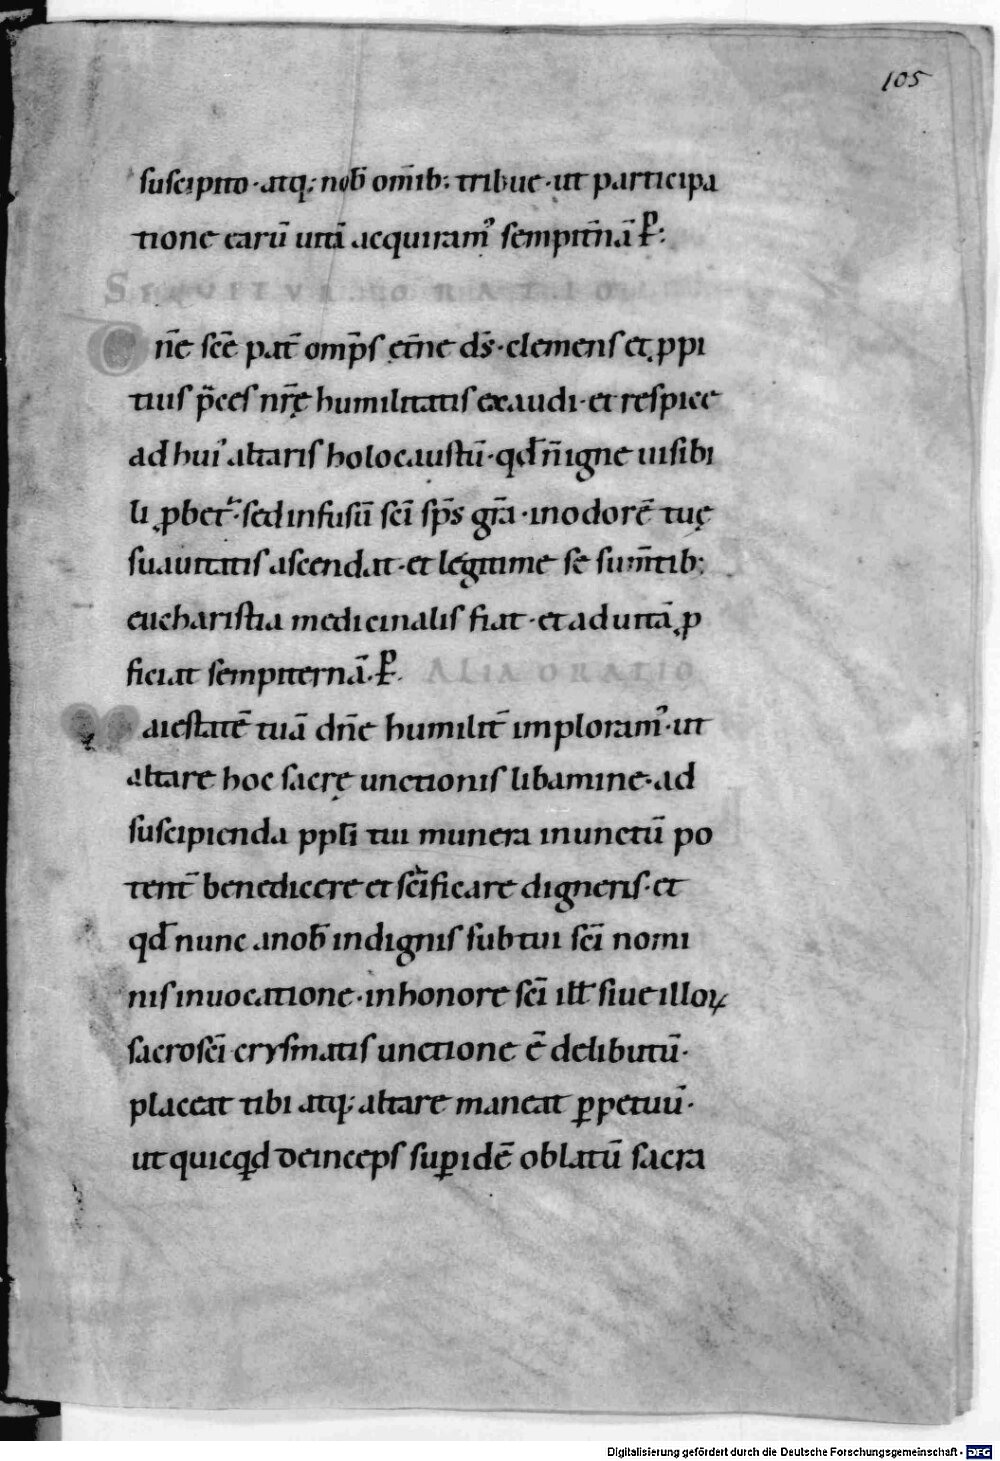 105
suscipito · atq; nob̄ om̄ib; tribue · ut participa
tione earū uitā acquiram᾽ sempit̄nā P̲:
SEQVITVR ORATIO
Dn̄e sc̄e pat̄ omp̄s et̄ne ds̄ · clemens et ꝓpi
tius p̄ces nr̄ę humilitatis exaudi · et respice
ad hui᾽ altaris holocaustū · qđ n̄ igne uisibi
li ꝓbet᷑ · sed infusū sc̄i sp̄s gr̄a · in odorē tuę
suauitatis ascendat · et legitime se sum̄tib;
eucharistia medicinalis fiat · et ad uitā ꝓ
ficiat sempiternā · P̲. ALIA ORATIO
Maiestatē tuā dn̄e humilit̄ imploram᾽ · ut
altare hoc sacrę unctionis libamine · ad
suscipienda ppl̄i tui munera inunctū po
tent̄ benedicere et sc̄ificare digneris · et
qđ nunc a nob̄ indignis sub tui sc̄i nomi
nis inuocatione · in honore sc̄i ill̄ siue illoꝝ
sacrosc̄i crysmatis unctione ē delibutū ·
placeat tibi atq; altare maneat ꝑpetuū ·
ut quicqd deinceps suꝑ idē oblatū sacra
Digitalisierung gefördert durch die Deutsche Forschungsgemeinschaft - DFG